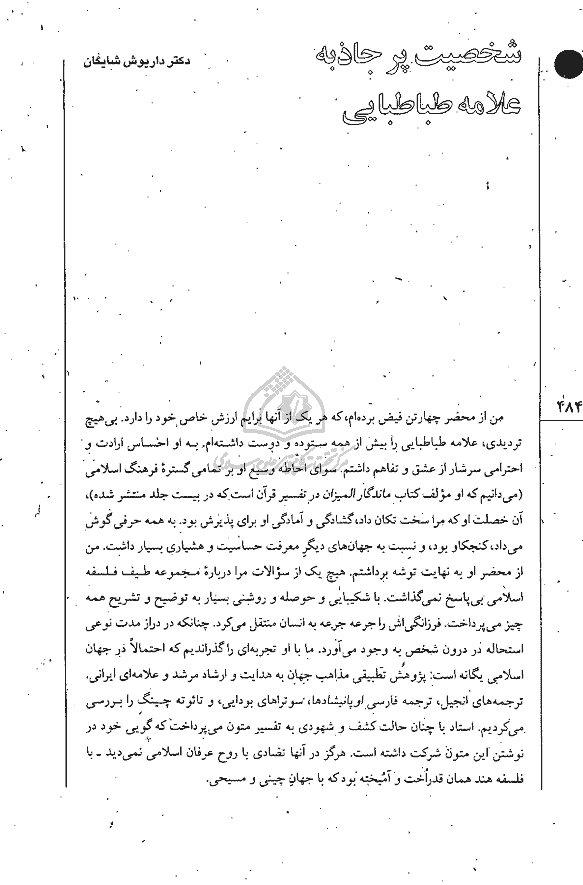 شخصیت پر جاذبه
علامه طباطبایی
دکتر داریوش شایگان
۴۸۴
من از محضر چهارتن فیض برده‌ام، که هر یک از آنها برایم ارزش خاص خود را دارد. بی‌هیچ
تردیدی، علامه طباطبایی را بیش از همه ستوده و دوست داشته‌ام. به او احساس ارادت و
احترامی سرشار از عشق و تفاهم داشتم. سوای احاطه وسیع او بر تمامی گسترهٔ فرهنگ اسلامی
(می‌دانیم که او مؤلف کتاب ماندگار المیزان در تفسیر قرآن است که در بیست جلد منتشر شده)،
آن خصلت او که مرا سخت تکان داد، گشادگی و آمادگی او برای پذیرش بود. به همه حرفی گوش
می‌داد، کنجکاو بود، و نسبت به جهان‌های دیگر معرفت حساسیت و هشیاری بسیار داشت. من
از محضر او به نهایت توشه برداشتم. هیچ یک از سؤالات مرا دربارهٔ مجموعه طیف فلسفه
اسلامی بی‌پاسخ نمی‌گذاشت. با شکیبایی و حوصله و روشنی بسیار به توضیح و تشریح همه
چیز می‌پرداخت. فرزانگی‌اش را جرعه جرعه به انسان منتقل می‌کرد. چنانکه در دراز مدت نوعی
استحاله در درون شخص به وجود می‌آورد. ما با او تجربه‌ای را گذراندیم که احتمالاً در جهان
اسلامی یگانه است: پژوهش تطبیقی مذاهب جهان به هدایت و ارشاد مرشد و علامه‌ای ایرانی.
ترجمه‌های انجیل، ترجمه فارسی اوپانیشادها، سوتراهای بودایی، و تائوته چینگ را بررسی
می‌کردیم. استاد با چنان حالت کشف و شهودی به تفسیر متون می‌پرداخت که گویی خود در
نوشتن این متون شرکت داشته است. هرگز در آنها تضادی با روح عرفان اسلامی نمی‌دید ـ با
فلسفه هند همان قدر اُخت و آمیخته بود که با جهان چینی و مسیحی.